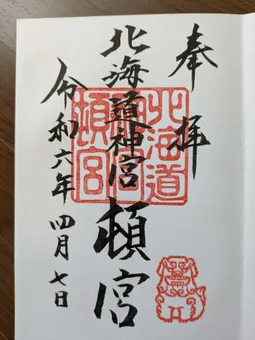 奉拝
北海道神宮頓宮
北海道神宮頓宮
令和六年四月七日